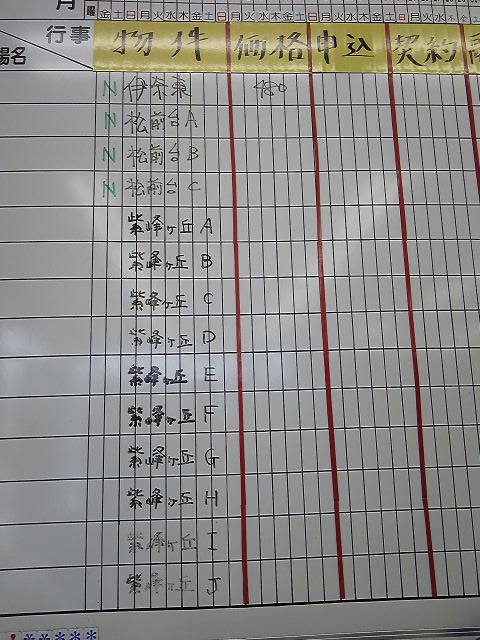 月 曜 金 土 日 月 火 水 木 金 土 日 月 火 水 木 金 土 日 月 火 水 木 金 土 日 月 火 水
行事 物件 価格 申込 契約
場名
N 伊奈東 480
N 松前台 A
N 松前台 B
N 松前台 C
紫峰ヶ丘 A
紫峰ヶ丘 B
紫峰ヶ丘 C
紫峰ヶ丘 D
紫峰ヶ丘 E
紫峰ヶ丘 F
紫峰ヶ丘 G
紫峰ヶ丘 H
紫峰ヶ丘 I
紫峰ヶ丘 J